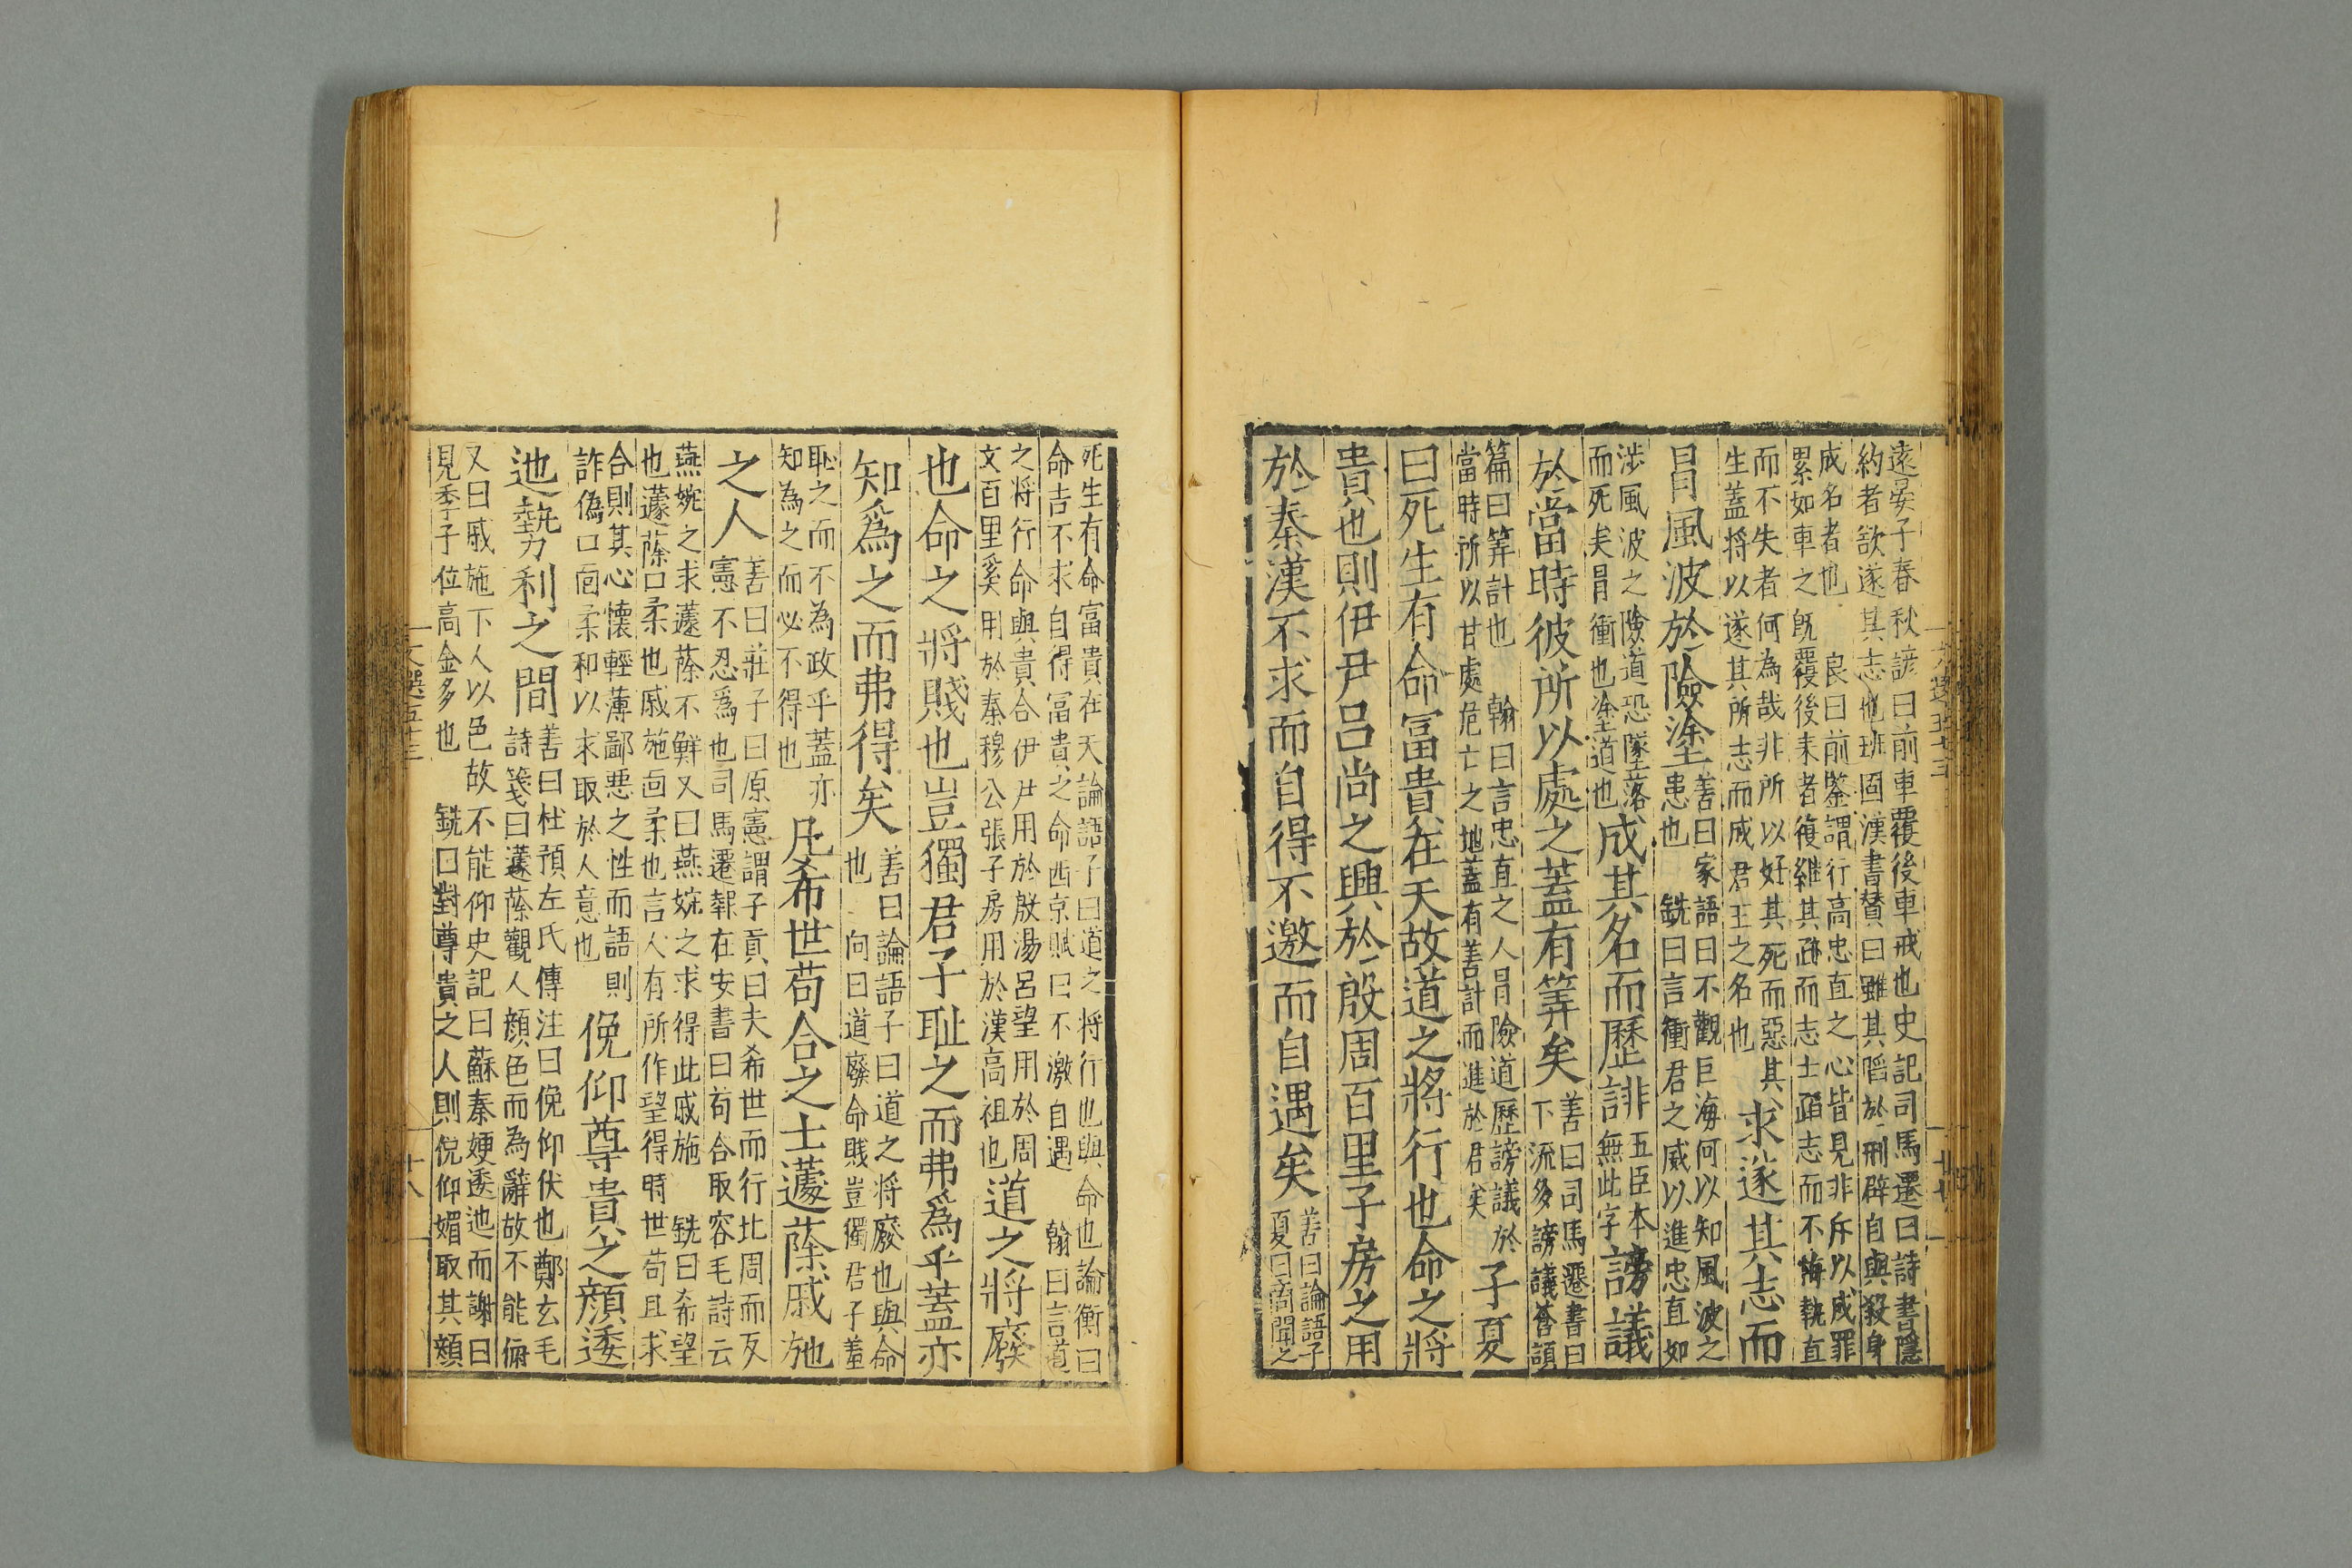 遠晏子春秋諺曰前車覆後車戒也史記司馬遷曰詩書隱
約者欲遂其志也班固漢書贊曰雖其陷於刑辟自與殺身
成名者也　良曰前鑒謂行高忠直之心皆見非斥以成罪
累如車之既覆後來者復繼其跡而志士蹈志而不悔執直
而不失者何為哉非所以好其死而惡其
生蓋將以遂其所志而成君王之名也
求遂其志而
冒風波於險塗
善曰家語曰不觀巨海何以知風波之
患也　銑曰言衝君之威以進忠直如
涉風波之險道恐墜落
而死矣冒衝也塗道也
成其名而歷誹
五臣本
無此字
謗議
於當時彼所以處之蓋有筭矣
善曰司馬遷書曰
下流多謗議蒼頡
篇曰筭計也　翰曰言忠直之人冒險道歷謗議於
當時所以甘處危亡之地蓋有善計而進於君矣
子夏
曰死生有命冨貴在天故道之將行也命之將
貴也則伊尹呂尚之興於殷周百里子房之用
於秦漢不求而自得不邀而自遇矣
善曰論語子
夏曰商聞之
死生有命富貴在天論語子曰道之将行也與命也論衡曰
命吉不求自得冨貴之命西京賦曰不激自遇　翰曰言道
之将行命與貴合伊尹用於殷湯呂望用於周
文百里奚用於秦穆公張子房用於漢高祖也
道之將廢
也命之將賤也豈獨君子耻之而弗爲乎蓋亦
知爲之而弗得矣
善曰論語子曰道之将廢也與命
也　向曰道廢命賤豈獨君子羞
恥之而不為政乎蓋亦
知為之而必不得也
凡希世苟合之士蘧蒢戚施
之人
善曰莊子曰原憲謂子貢曰夫希世而行比周而友
憲不忍爲也司馬遷報任安書曰苟合取容毛詩云
燕婉之求蘧蒢不鮮又曰燕婉之求得此戚施　銑曰希望
也蘧蒢口柔也戚施面柔也言人有所作望得時世苟且求
合則其心懷輕薄鄙惡之性而語則
詐偽口面柔和以求取於人意也
俛仰尊貴之顔逶
迆勢利之間
善曰杜預左氏傳注曰俛仰伏也鄭玄毛
詩箋曰蘧蒢觀人顔色而為辭故不能俯
又曰戚施下人以色故不能仰史記曰蘇秦㛹逶迆而謝曰
見季子位高金多也　銑曰對尊貴之人則俛仰媚取其顔